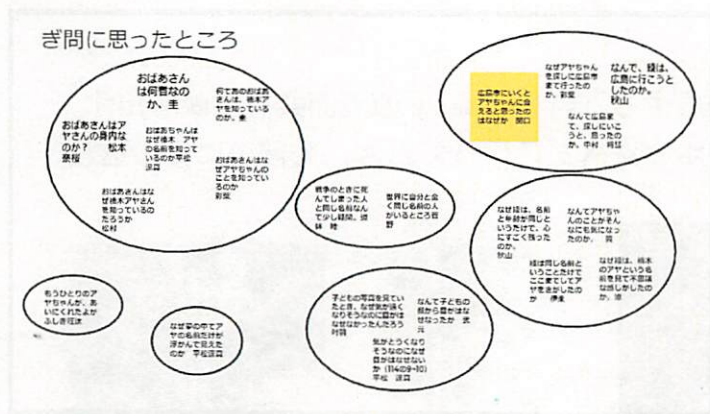 ぎ問に思ったところ
おばあさん
は何者なの
か、圭
何であのおばあ
さんは、橋本ア
ヤを知っている
のか、圭
おばあさんはア
ヤさんの身内な
のか？ 松本
おばあちゃんは
なぜ橋本 アヤ
の名前を知って
いるのか平松
おばあさんはな
ぜアヤちゃんの
ことを知ってい
るのか
おばあさんはな
ぜ橋本アヤさん
を知っているの
だろうか
松村
広島市にいくと
アヤちゃんに会
えると思ったの
はなぜか 関口
なぜアヤちゃん
を探しに広島市
まで行ったの
か、
なんで、綾は、
広島に行こうと
したのか。
秋山
なんで広島ま
で、探しにいこ
うと、思ったの
か、中村
戦争のときに死
んでしまった人
と同じ名前なん
て少し疑問。
世界に自分と全
く同じ名前の人
がいるところ
なぜ綾は、名前
と年齢が同じと
いうだけで、心
にすごく残った
のか。
秋山
なんてアヤちゃ
んのことがそん
なにも気になっ
たのか、
綾は同じ名前と
いうことだけで
ここまでしてア
ヤをさがしたの
か
なぜ綾は、橋本
のアヤという名
前を見て不思議
な感じがしたの
か、
もうひとりのア
ヤちゃんが、あ
いにくれたよが
ふしぎ
なぜ夢の中でア
ヤの名前だけが
浮かんで見えた
のか 平松
子どもの写真を見てい
たとき、なぜ気が遠く
なりそうなのに目がは
なせなかったんだろう
なんて子どもの
顔から目がはな
せなったか
気がとうくなり
そうなのになぜ
目がはなせない
か（114の9~10）
平松